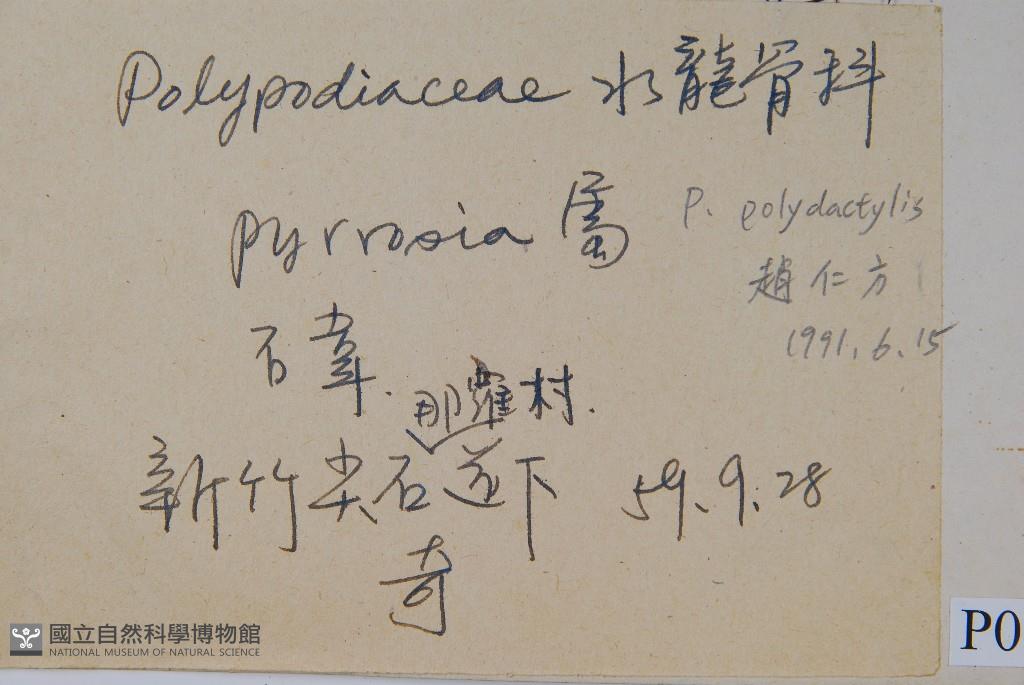 Polypodiaceae 水龍骨科
pyrrosia 屬
P. polydactylis
趙仁方
1991.6.15
石葦.
那羅村.
新竹尖石道下 59.9.28
奇
國立自然科學博物館
NATIONAL MUSEUM OF NATURAL SCIENCE
P0